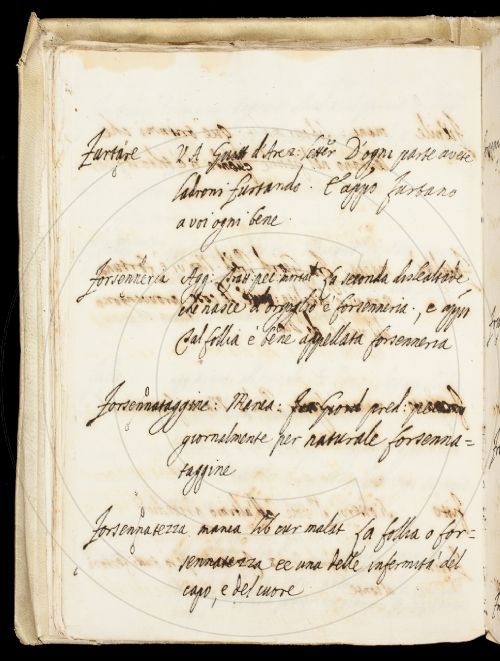 Furtare V. A. Guitt d'Arez: lett: D'ogni parte avete
ladroni furtando. E appo furtano
a voi ogni bene.
Forsenneria Agg: tratt pec mort La seconda dislealtade
che nasce d'orgoglio è forsenneria., e appo
Cal follia è bene appellata forsenneria
Forsennataggine: Manca: Fra Giord pred:
giornalmente per naturale forsenna=
taggine
Forsennatezza manca lib cur malat La follia o for=
sennatezza ee una delle infermità del
capo, e del cuore